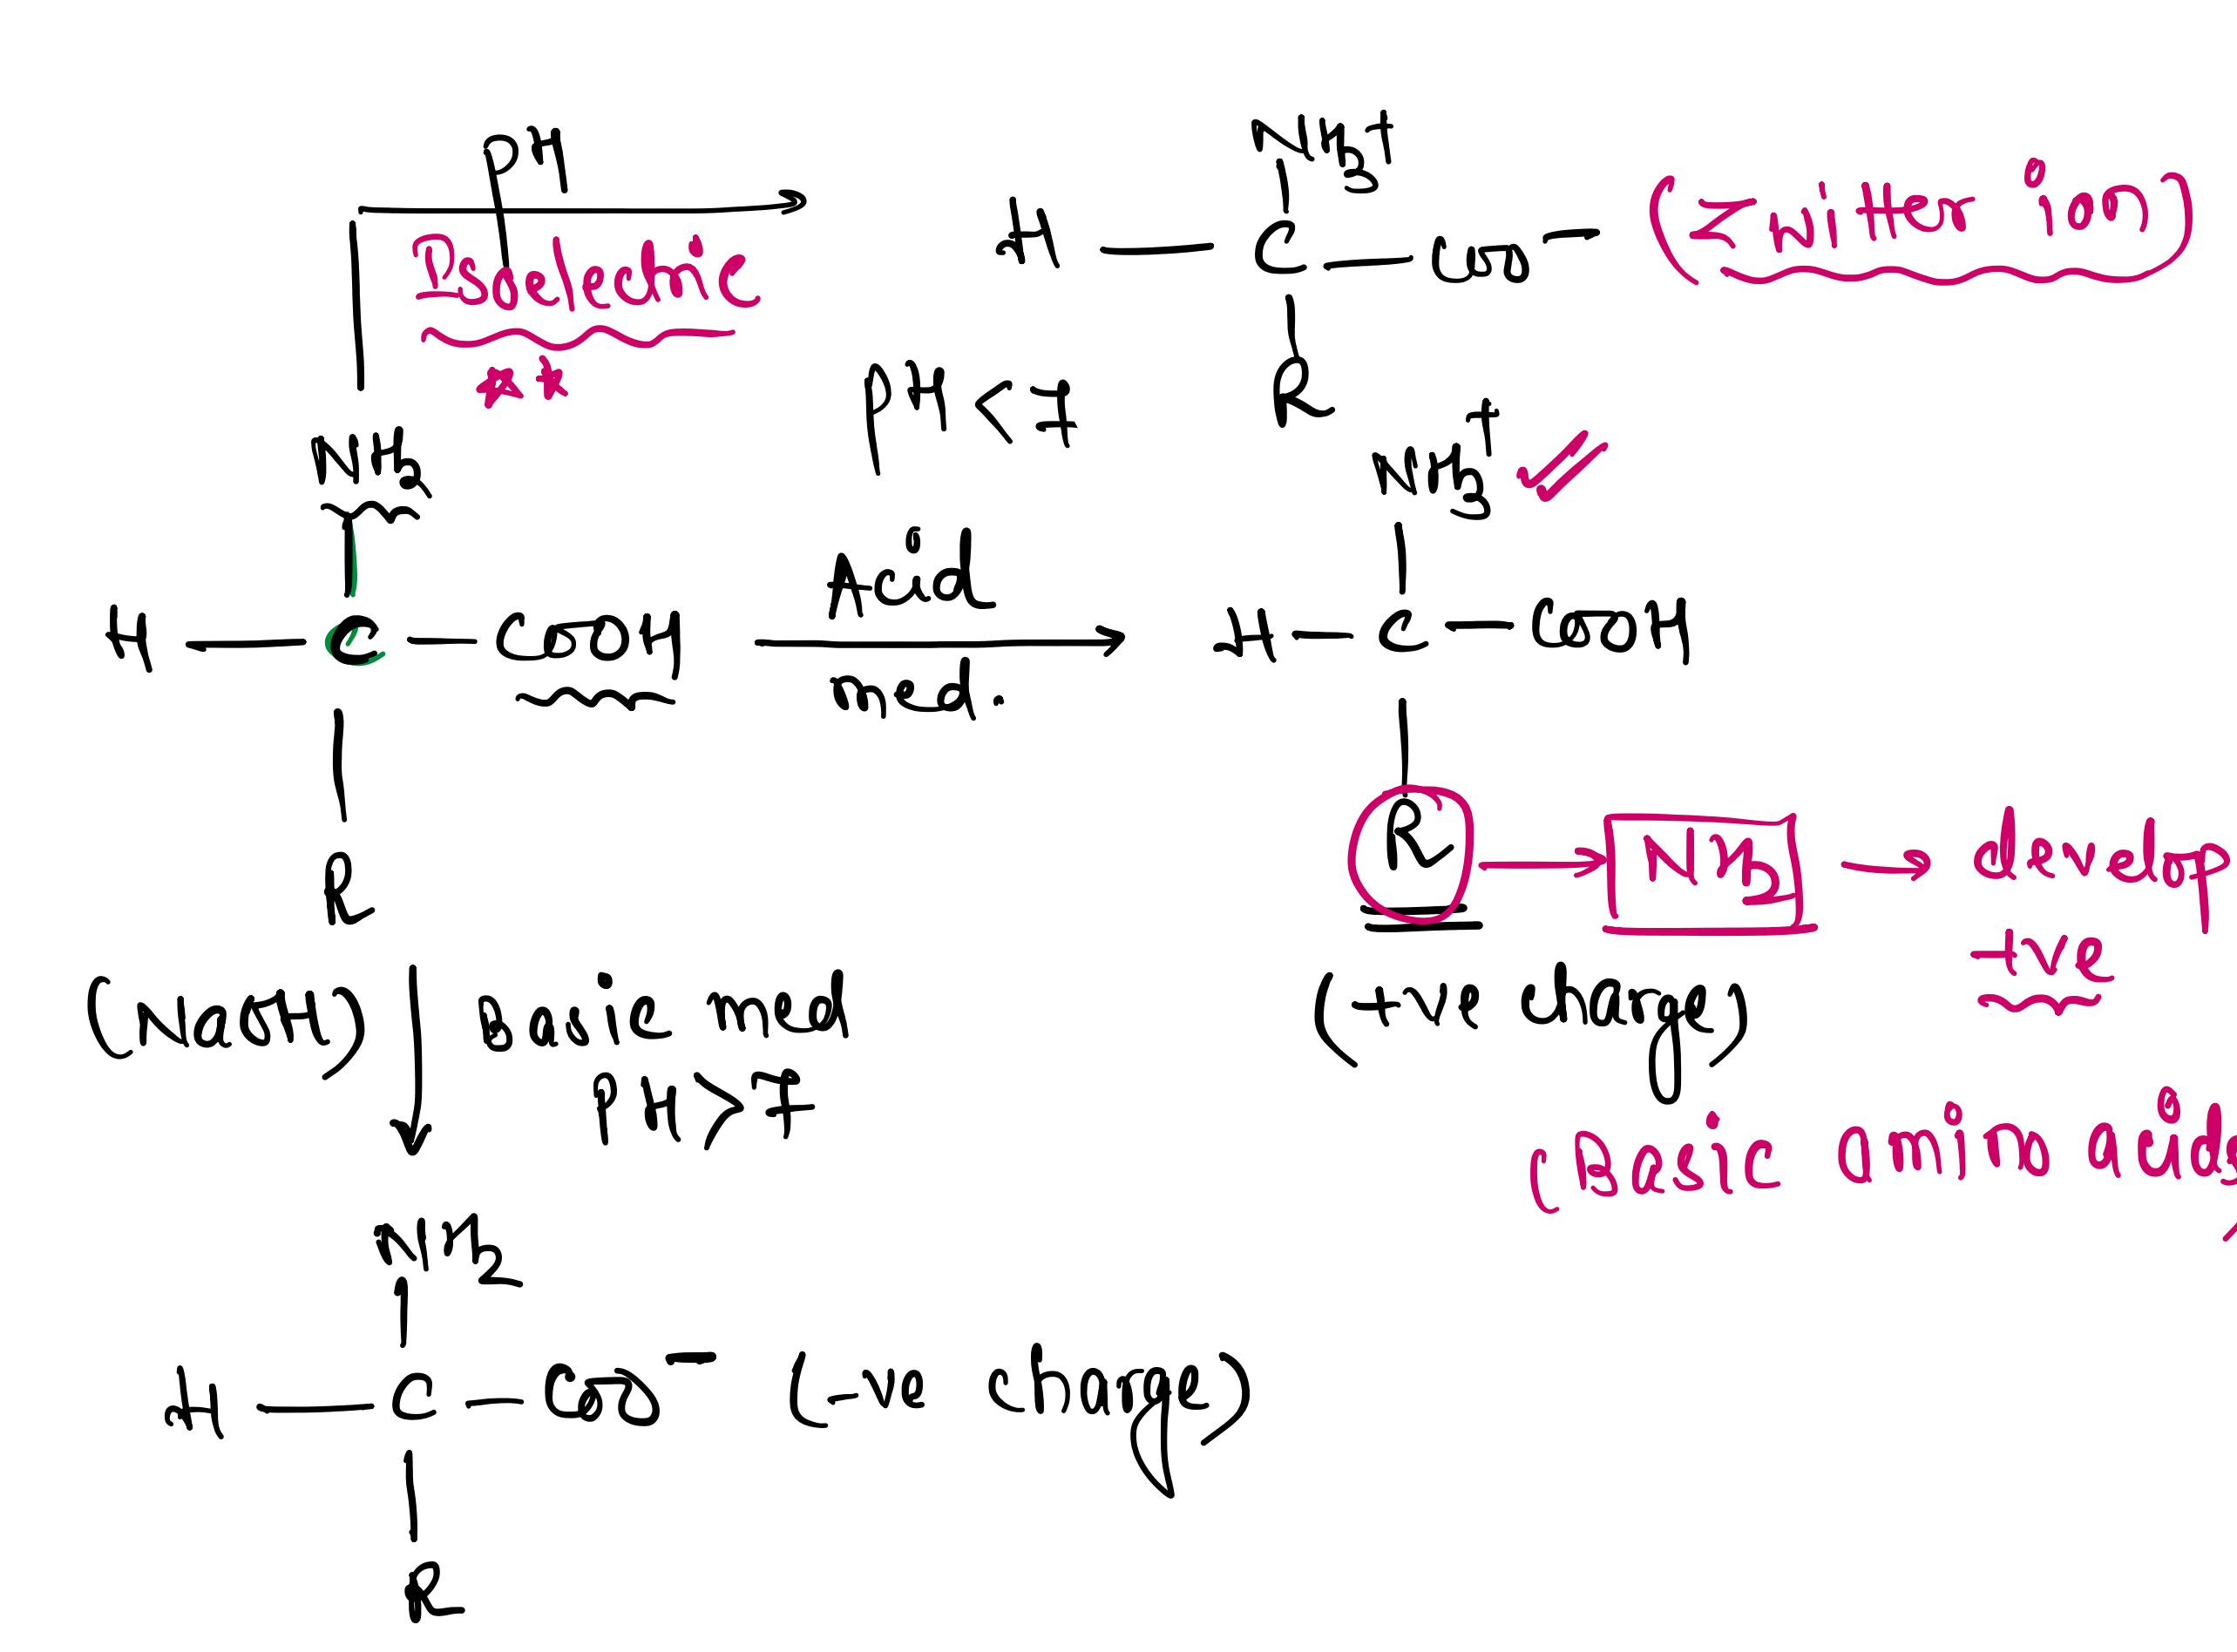 pH
Isoelectric
NH3+
H — C — COO− (Zwitter ion)
R
pH < 7
NH2
H — C — COOH
R
Acid
med.
NH3+
H — C — COOH
R → NH2 → develop
+ve
(+ve charge)
(Basic amino acids)
(NaOH)
basic med
PH > 7
NH2
H — C — COO− (-ve charge)
R